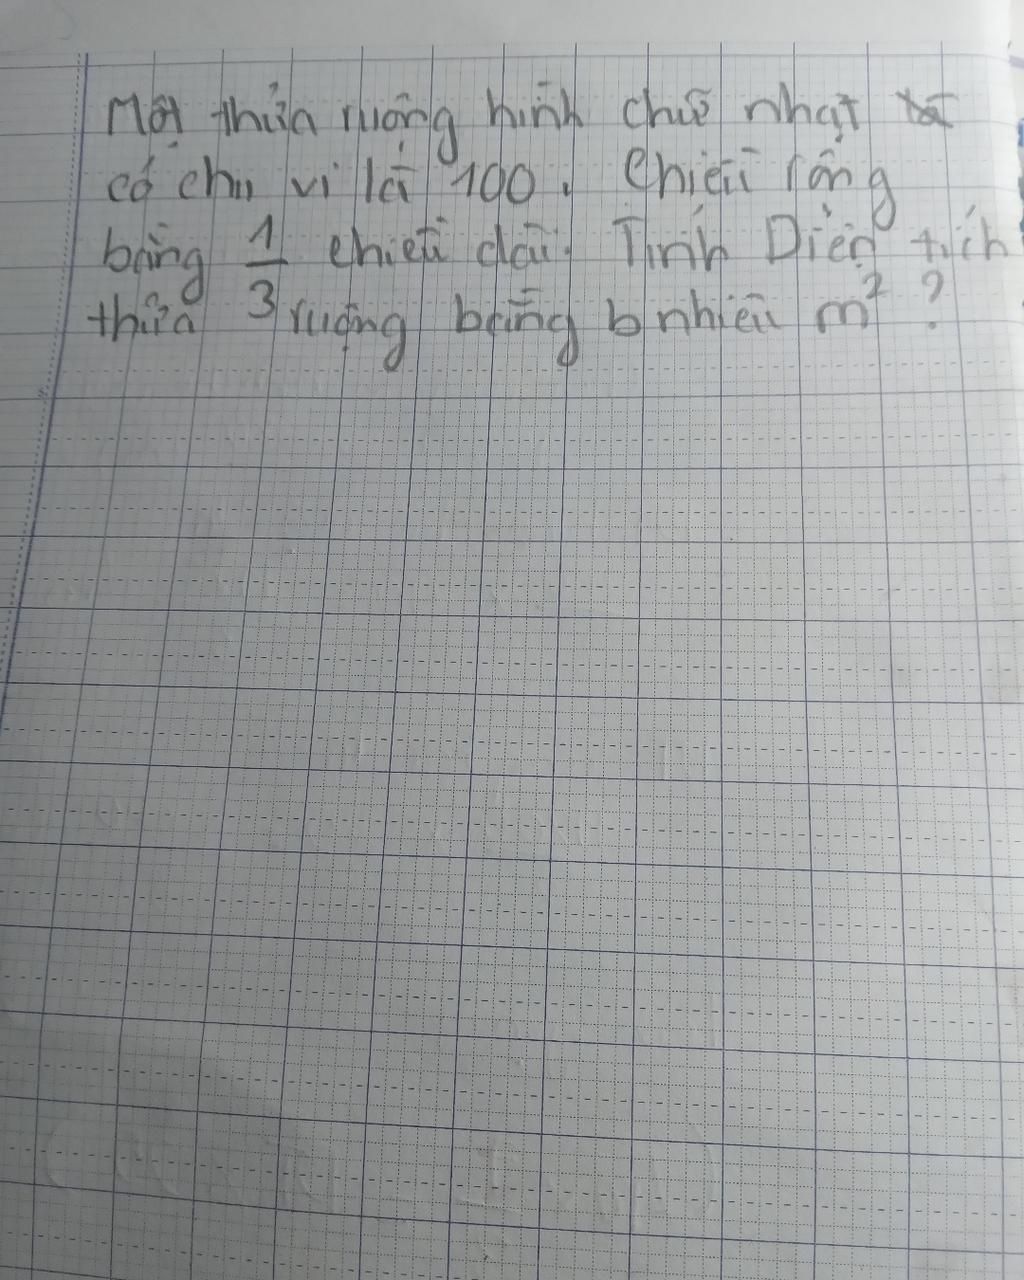 Một thửa ruộng hình chữ nhật
có chu vi là 100. Chiều rộng
bằng 1/3 chiều dài. Tính Diện tích
thửa ruộng bằng b nhiêu m² ?